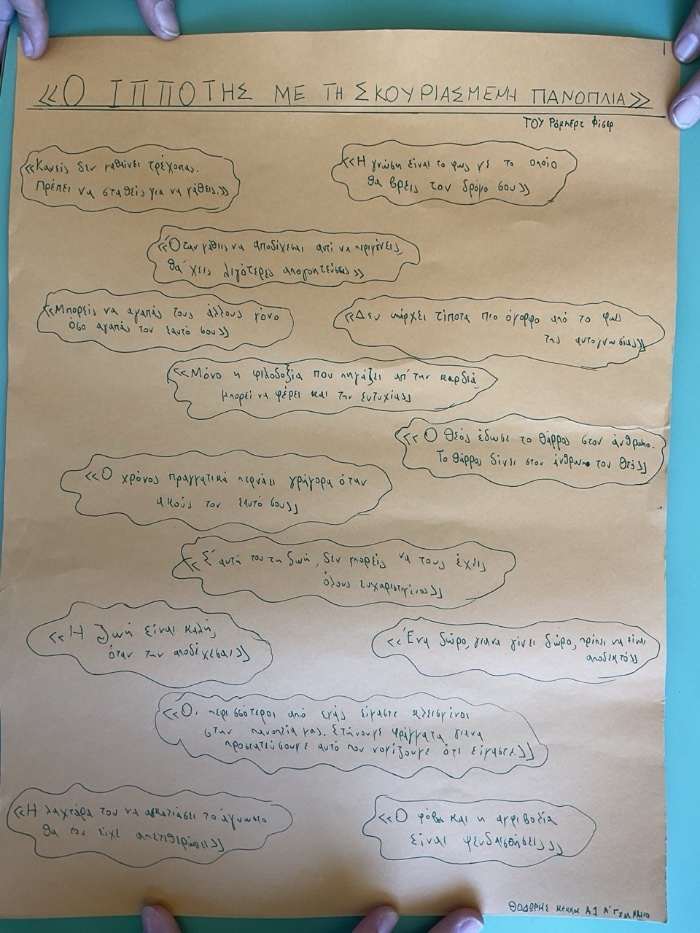 «Ο ΙΠΠΟΤΗΣ ΜΕ ΤΗ ΣΚΟΥΡΙΑΣΜΕΝΗ ΠΑΝΟΠΛΙΑ»
ΤΟΥ Ρόμπερτ Φίσερ
«Κανείς δεν μαθαίνει τρέχοντας.
Πρέπει να σταθείς για να μάθεις.»
«Η γνώση είναι το φως με το οποίο
θα βρεις τον δρόμο σου»
«Όταν μάθεις να αποδέχεσαι αντί να περιμένεις,
θα 'χεις λιγότερες απογοητεύσεις»
«Μπορείς να αγαπάς τους άλλους μόνο
όσο αγαπάς τον εαυτό σου»
«Δεν υπάρχει τίποτα πιο όμορφο από το φως
της αυτογνωσίας»
«Μόνο η φιλοδοξία που πηγάζει απ' την καρδιά
μπορεί να φέρει και την ευτυχία»
«Ο Θεός έδωσε το θάρρος στον άνθρωπο.
Το θάρρος δίνει στον άνθρωπο τον Θεό»
«Ο χρόνος πραγματικά περνάει γρήγορα όταν
ακούς τον εαυτό σου»
«Σ' αυτή του τη ζωή, δεν μπορείς να τους έχεις
όλους ευχαριστημένους»
«Η ζωή είναι καλή,
όταν την αποδέχεσαι»
«Ένα δώρο, για να γίνει δώρο, πρέπει να είναι
αποδεκτό»
«Οι περισσότεροι από εμάς είμαστε κλεισμένοι
στην πανοπλία μας. Στήνουμε φράγματα για να
προστατεύσουμε αυτό που νομίζουμε ότι είμαστε.»
«Η λαχτάρα του να αγκαλιάσει το άγνωστο
θα τον είχε απελευθερώσει»
«Ο φόβος και η αμφιβολία
είναι ψευδαισθήσεις»
ΘΟΔΩΡΗΣ Α1 Α' ΓΥΜΝΑΣΙΟ